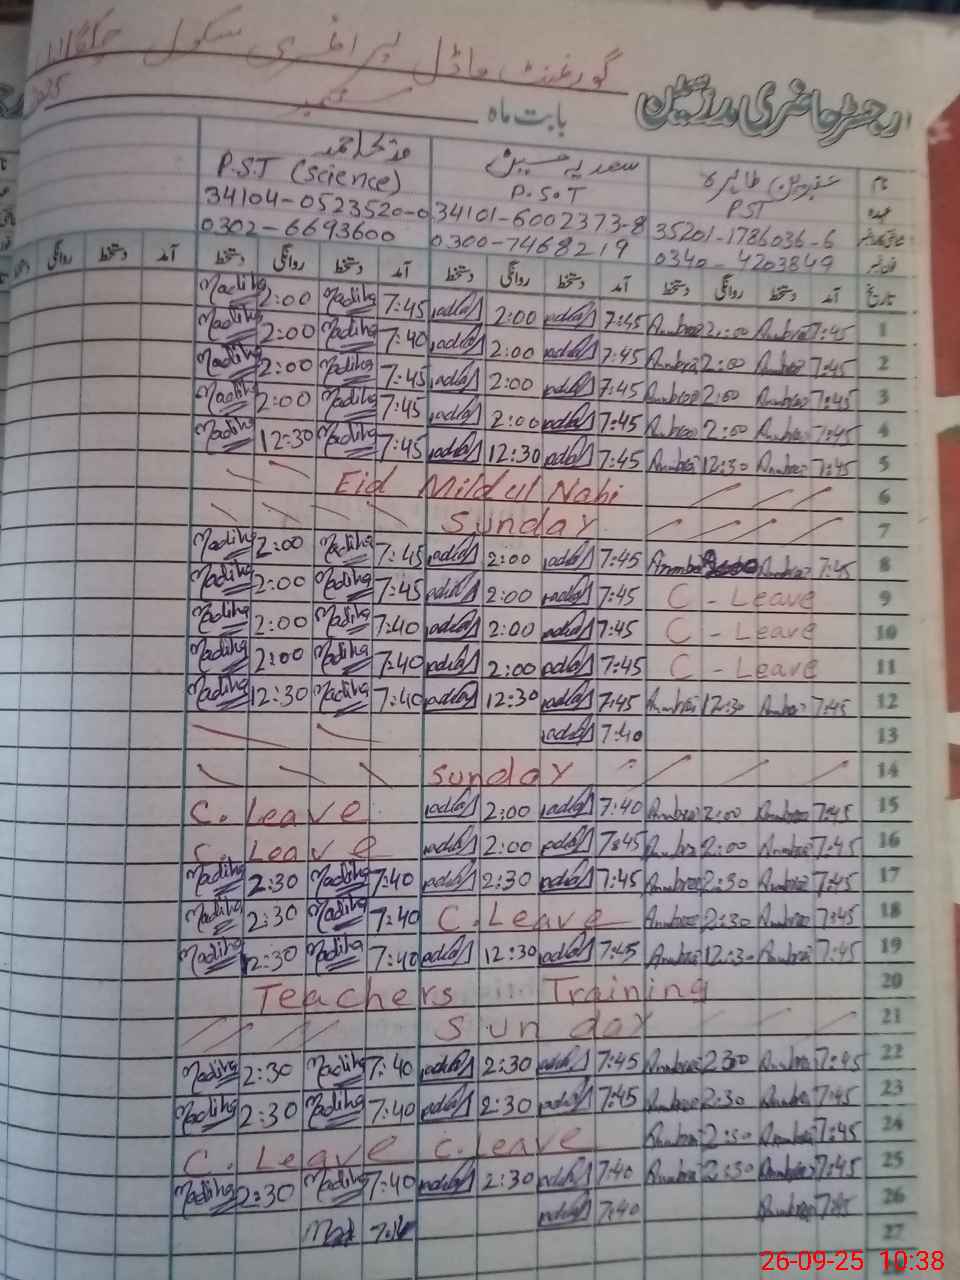 گورنمنٹ ماڈل پرائمری سکول
رجسٹر حاضری مدرسین
بابت ماہ ستمبر 2025
نام عنبرین طاہرہ سعدیہ حسین مدیحہ احمد
عہدہ PST P.S.T P.S.T (Science)
35201-1786036-6 34101-6002373-8 34104-0523520-0
فون نمبر 0340-4203849 0300-7468219 0302-6693600
تاریخ آمد دستخط روانگی دستخط آمد دستخط روانگی دستخط آمد دستخط روانگی دستخط آمد دستخط روانگی دستخط
Madiha 2:00 Madiha 7:45 2:00 7:45 Ambree 2:00 Ambree 7:45 1
Madiha 2:00 Madiha 7:40 2:00 7:45 Ambree 2:00 Ambree 7:45 2
Madiha 2:00 Madiha 7:45 2:00 7:45 Ambree 2:00 Ambree 7:45 3
Madiha 2:00 Madiha 7:45 2:00 7:45 Ambree 2:00 Ambree 7:45 4
Madiha 12:30 Madiha 7:45 12:30 7:45 Ambree 12:30 Ambree 7:45 5
Eid Mildul Nabi 6
Sunday 7
Madiha 2:00 Madiha 7:45 2:00 7:45 Ambree Ambree 7:45 8
Madiha 2:00 Madiha 7:45 2:00 7:45 C - Leave 9
Madiha 2:00 Madiha 7:40 2:00 7:45 C - Leave 10
Madiha 2:00 Madiha 7:40 2:00 7:45 C - Leave 11
Madiha 12:30 Madiha 7:40 12:30 7:45 Ambree 12:30 Ambree 7:45 12
7:40 13
Sunday 14
C. Leave 2:00 7:40 Ambree 2:00 Ambree 7:45 15
C. Leave 2:00 7:45 Ambree 2:00 Ambree 7:45 16
Madiha 2:30 Madiha 7:40 2:30 7:45 Ambree 2:30 Ambree 7:45 17
Madiha 2:30 Madiha 7:40 C. Leave Ambree 2:30 Ambree 7:45 18
Madiha 12:30 Madiha 7:40 12:30 7:45 Ambree 12:30 Ambree 7:45 19
Teachers Training 20
Sunday 21
Madiha 2:30 Madiha 7:40 2:30 7:45 Ambree 2:30 Ambree 7:45 22
Madiha 2:30 Madiha 7:40 2:30 7:45 Ambree 2:30 Ambree 7:45 23
C. Leave C. Leave Ambree 2:30 Ambree 7:45 24
Madiha 2:30 Madiha 7:40 2:30 7:40 Ambree 2:30 Ambree 7:45 25
7:40 Ambree 7:45 26
27
26-09-25 10:38